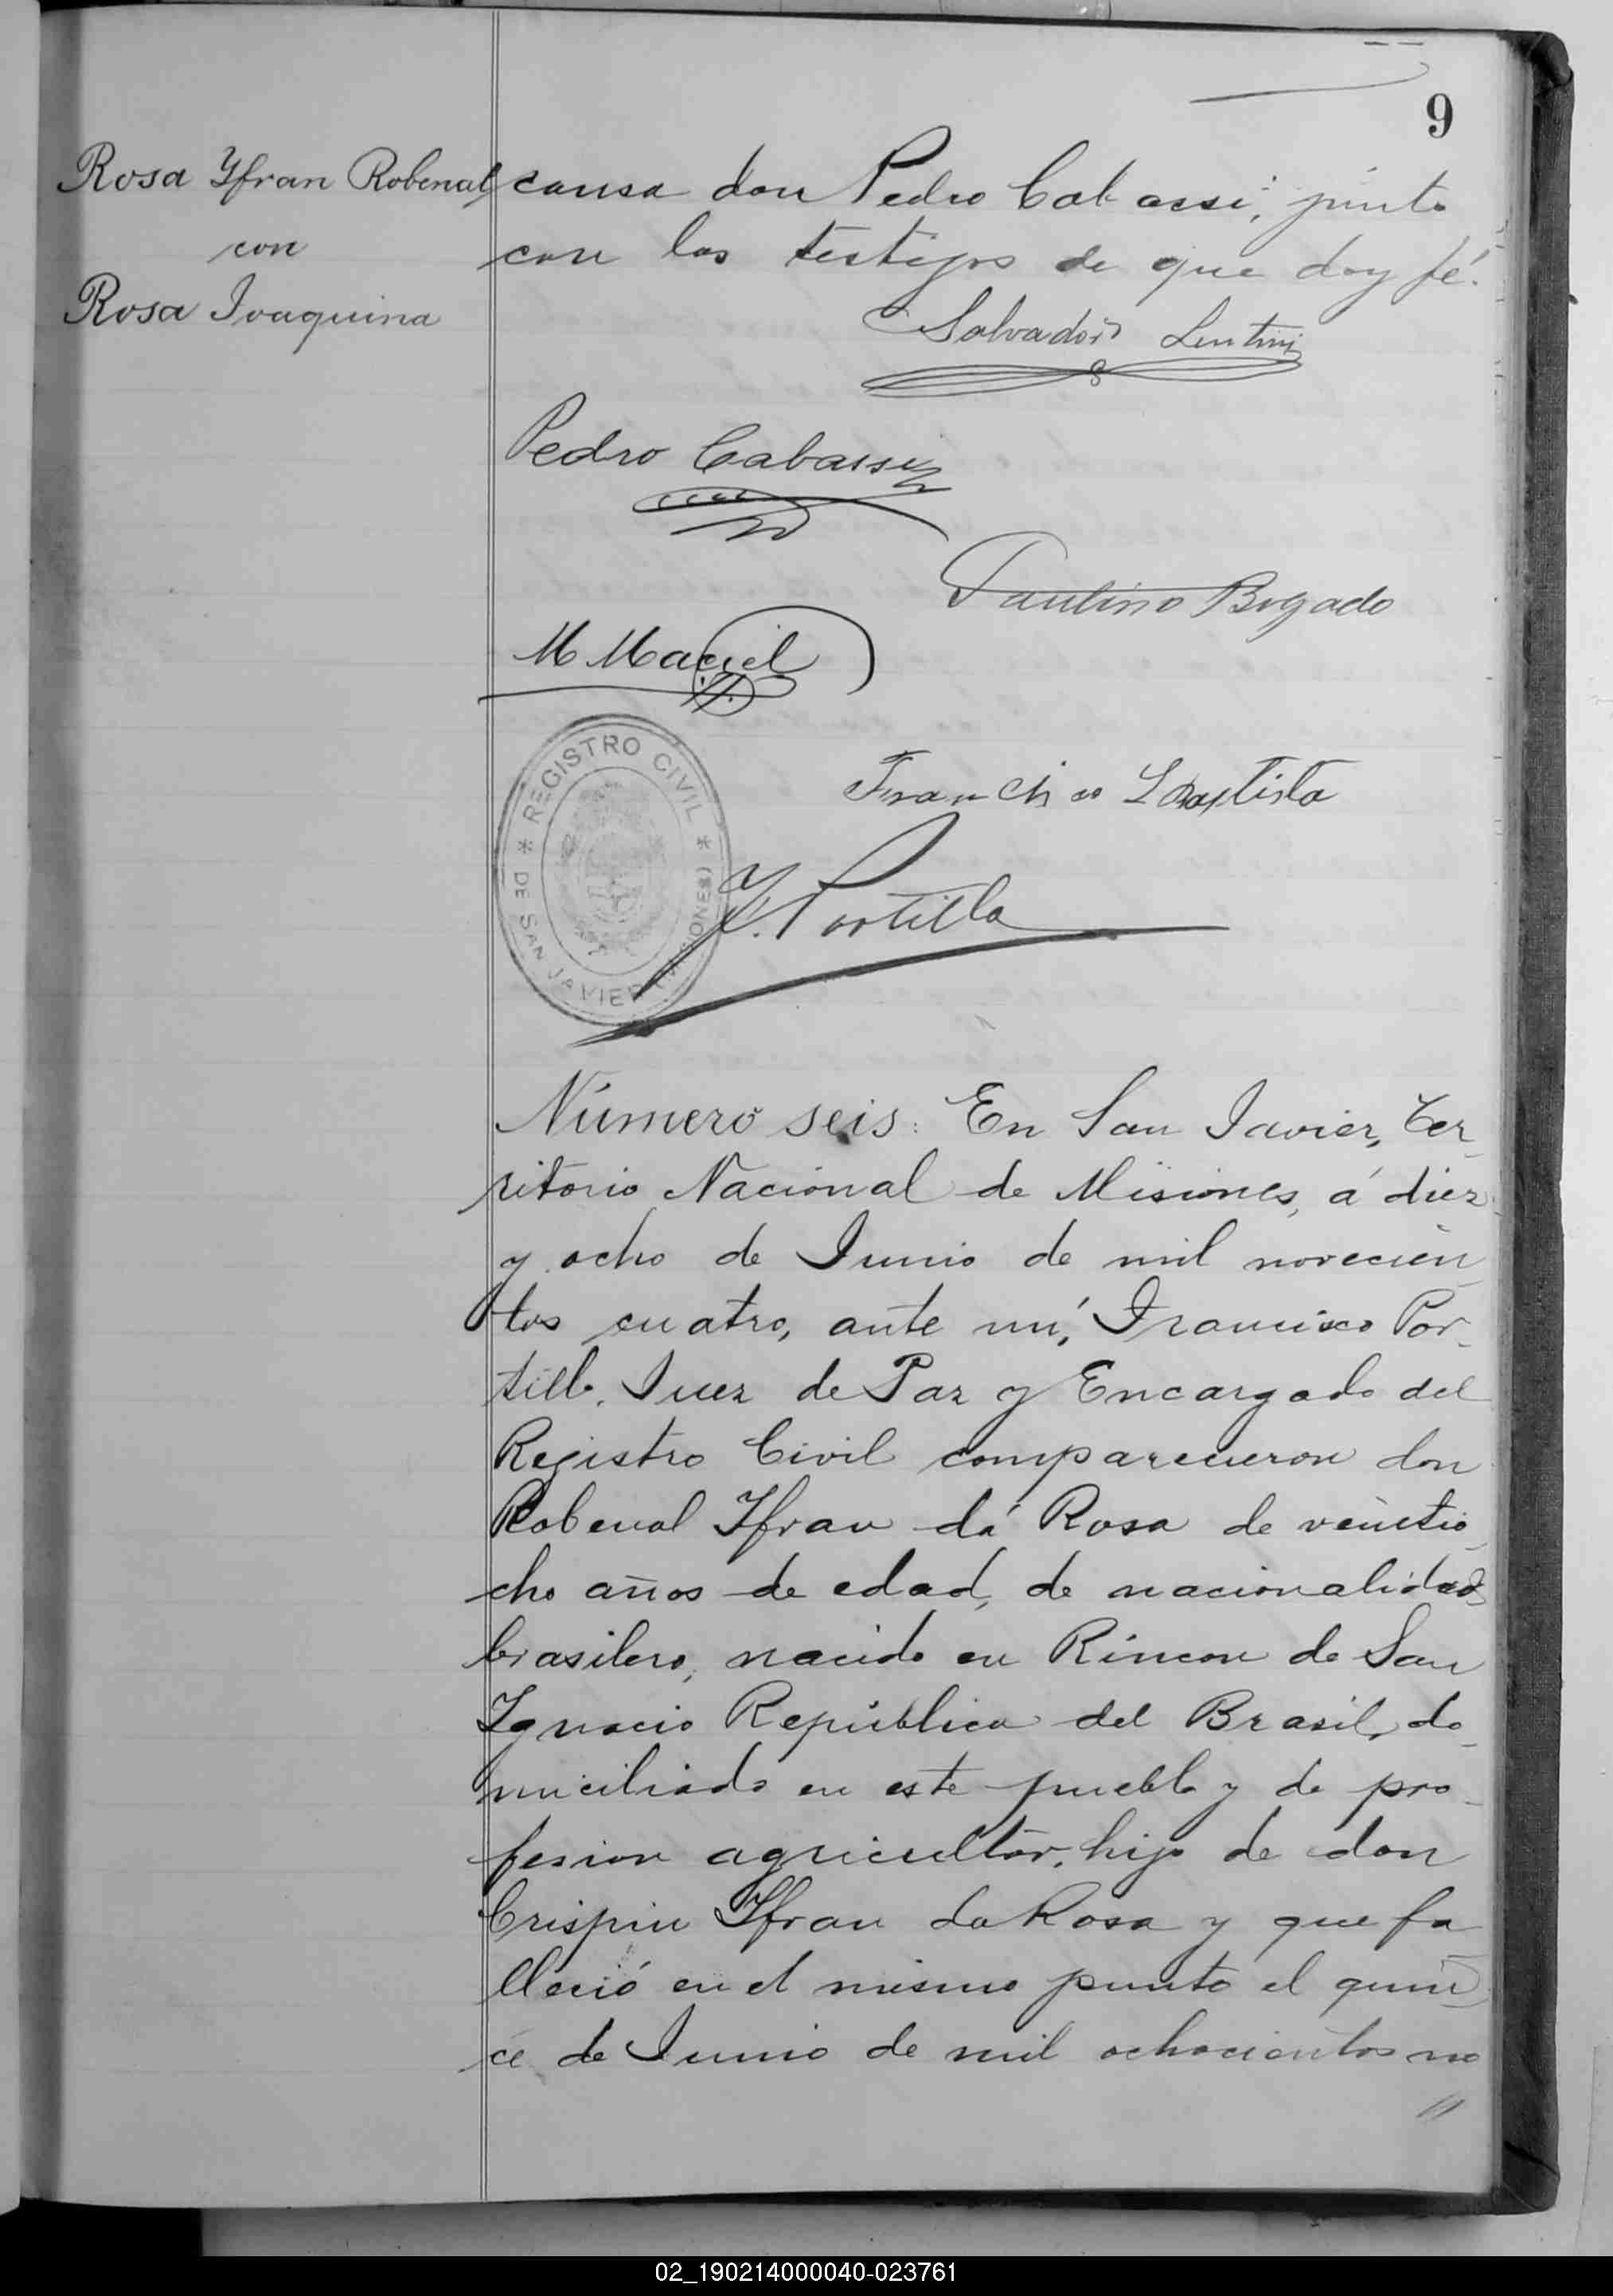 9
Rosa Yfran Robenal
con
Rosa Joaquina
causa don Pedro Cabassi, junto
con los testigos de que doy fé.
Salvador Lentini
Pedro Cabassi
Paulino Bogado
M Maciel
REGISTRO CIVIL
* DE SAN JAVIER (MISIONES) *
Francisco L Bautista
F. Portillo
Número seis: En San Javier, Ter_
ritorio Nacional de Misiones, á diez
y ocho de Junio de mil novecien_
tos cuatro, ante mí, Francisco Por_
tillo, Juez de Paz y Encargado del
Registro Civil comparecieron don
Robenal Yfran da Rosa de veintio_
cho años de edad, de nacionalidad
brasilero, nacido en Rincon de San
Ygnacio República del Brasil, do_
miciliado en este pueblo y de pro_
fesion agricultor, hijo de don
Crispin Yfran da Rosa y que fa
lleció en el mismo punto el quin_
ce de Junio de mil ochocientos no
//
02_190214000040-023761